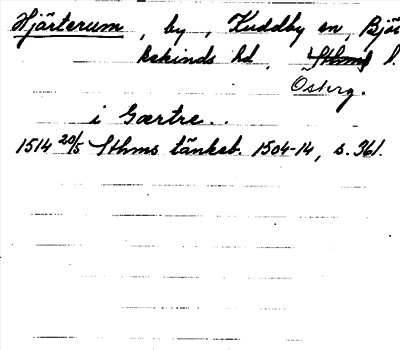 Hjärterum, by, Kuddby sn, Bjö
rekinds hd, Sthms l.
Östrg.
i Gærtre..
1514 20/5 Sthms tänkeb. 1504-14, s. 361.